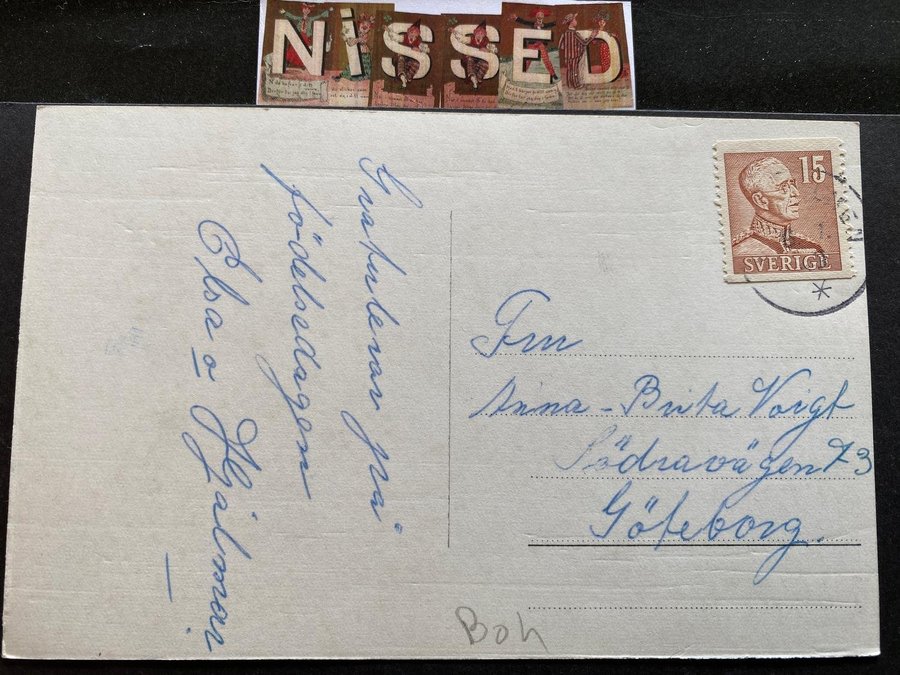 NISSED
15
SVERIGE
Gratulerar på
födelsedagen
Elsa o Hjalmar
Fru
Anna-Brita Voigt
Södravägen 73
Göteborg.
Boh